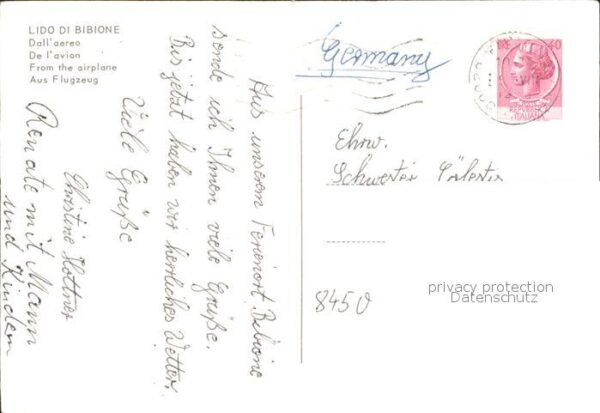 LIDO DI BIBIONE
Dall'aereo
De l'avion
From the airplane
Aus Flugzeug
Germany
LIRE 40
REPUBBLICA
ITALIANA
Aus unserem Ferienort Bibione
sende ich Ihnen viele Grüße.
Bis jetzt haben wir herrliches Wetter.
Viele Grüße
Christine
Renate mit Mann
und Kindern
Ehrw.
Schwester
8450
privacy protection
Datenschutz